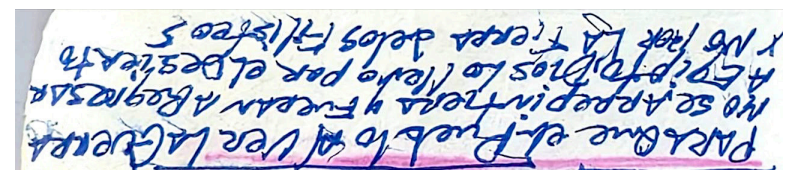 PARA QUE el Pueblo Al Ver LA GUERRA
NO Se ARREpintiERA y FUERAN A RegReSAR
A EGIpto DIOS Lo LLevo por el DesieRto
Y NO POR LA TieRRA delos FiLisTeos